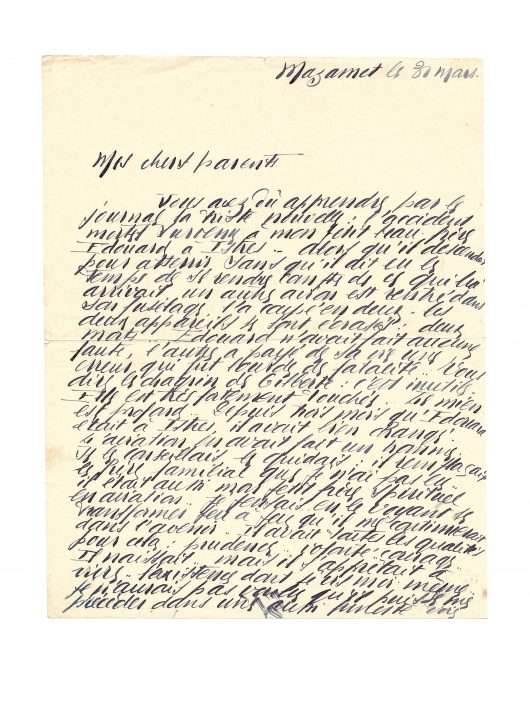 Mazamet le 30 mars.
Mes chers parents
Vous avez dû apprendre par le
journal la triste nouvelle : l'accident
mortel survenu à mon petit beau-frère
Edouard à Istres. Alors qu'il descendait
pour atterrir sans qu'il ait eu le
temps de se rendre compte de ce qui lui
arrivait un autre avion est rentré dans
son fuselage, l'a coupé en deux. Les
deux appareils se sont écrasés : deux
morts. Edouard n'avait fait aucune
faute, l'autre a payé de sa vie une
erreur qui fut lourde de fatalité. Vous
dire le chagrin de Gilberte : c'est inutile.
Elle est très fatement touchée. Le mien
est profond. Depuis trois mois qu'Edouard
était à Istres, il avait bien changé.
L'aviation en avait fait un homme.
Je le conseillais le guidais : il remplaçait
le frère familial que je n'ai pas eu
il était aussi mon petit frère spirituel
en aviation. Je pensais en le voyant se
transformer peu à peu qu'il me continuerait
dans l'avenir. Il avait toutes les qualités
pour cela, prudence, courage
Il naissait mais il s'apprêtait à
vivre l'existence dont je suis moi-même
je n'aurais pas voulu qu'il puisse me
précéder dans une autre